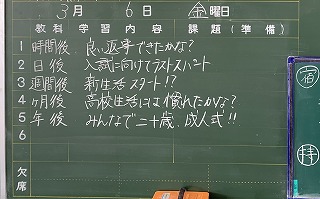 3月 6日 金曜日
教科 学習内容 課題(準備)
1 時間後 良い返事できたかな?
2 日後 入試に向けてラストスパート
3 週間後 新生活スタート!?
4 ヶ月後 高校生活には慣れたかな?
5 年後 みんなで二十歳、成人式!!
6
欠席
宿
持